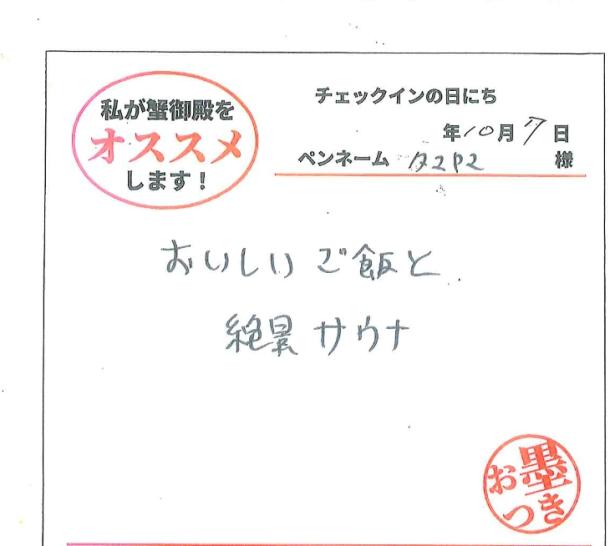 私が蟹御殿を
オススメ
します！
チェックインの日にち
年10月7日
ペンネーム 様
おいしいご飯と
絶景サウナ
お墨
つき